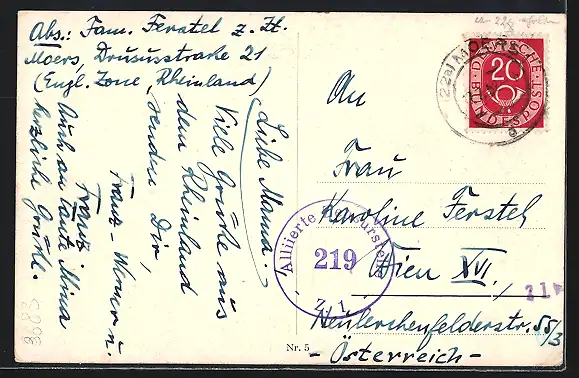 Abs.: Fam. Ferstel z. Zt.
Moers, Drususstraße 21
(Engl. Zone, Rheinland)
Liebe Mama!
Viele Grüße aus
dem Rheinland
senden Dir,
Franz - Werner u.
Franz
Auch an Tante Mina
herzliche Grüße.
An
Frau
Karoline Ferstel
Wien XVI,
Neulerchenfelderstr. 55/3
- Österreich -
(22a) MOERS
DEUTSCHE
BUNDESPOST
20
Alliierte Zensurstelle
219
Z. 1
21
Nr. 5